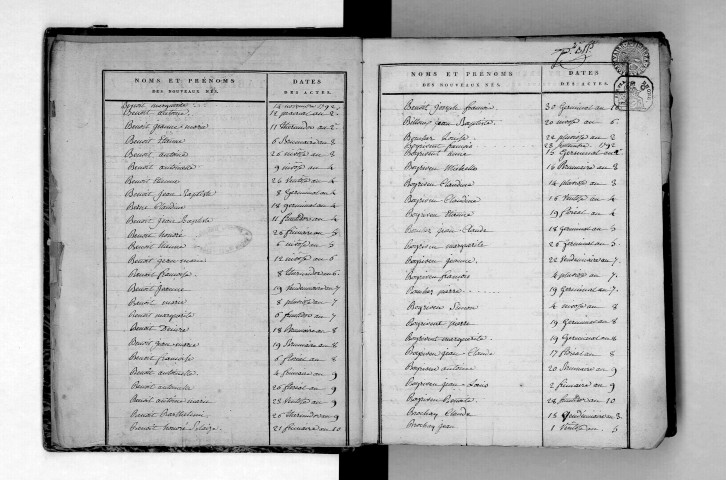 NOMS ET PRÉNOMS
DES NOUVEAUX NÉS.
DATES
DES ACTES.
Benoit marguerite 14 novembre 1792
Benoit antoine 12 prairial an 2
Benoit jeanne marie 11 thermidor an 2
Benoit Etienne 6 Brumaire an 3
Benoit antoine 26 nivose an 3
Benoit antoinette 9 nivose an 4
Benoit Etienne 26 Ventose an 4
Benoit Jean Baptiste 8 Germinal an 4
Claudine 18 germinal an 4
Benoit Jean Baptiste 11 fructidor an 4
Benoit honoré 26 frimaire an 5
Benoit Etienne 6 nivose an 5
Benoit jean marie 12 nivose an 6
Benoit françoise 8 thermidor an 6
Benoit Jeanne 19 Vendemiaire an 7
Benoit marie 8 pluviose an 7
Benoit marguerite 6 fructidor an 7
Benoit 18 Brumaire an 8
Benoit jean marie 19 Brumaire an 8
Benoit françoise 6 floréal an 8
Benoit antoinette 4 frimaire an 9
Benoit antoinette 26 floréal an 9
Benoit antoine marie 28 Ventose an 9
Benoit Barthelemi 26 thermidor an 9
Benoit honoré 21 frimaire an 10
NOMS ET PRÉNOMS
DES NOUVEAUX NÉS.
DATES
DES ACTES.
Benoit joseph françois 30 Germinal an 10
Jean Baptiste 20 nivose an 6
Boucher Louise 22 pluviose an 2
françois 28 septembre 1792
anne 16 Germinal an 2
Boyriven 16 Brumaire an 3
Boyriven Claudine 14 pluviose an 3
Boyriven Claudine 16 Ventose an 4
Boyriven Etienne 19 floréal an 4
Boucher jean Claude 18 Germinal an 5
Boyriven marguerite 26 Germinal an 5
Boyriven jeanne 22 Vendemiaire an 7
Boyriven françois 4 pluviose an 7
Boucher pierre 19 Germinal an 7
Boyriven Simon 4 nivose an 8
Boyrivent pierre 19 Germinal an 8
Boyrivent marguerite 19 Germinal an 8
Boyriven jean Claude 17 floréal an 8
Boyriven antoine 20 Brumaire an 9
Boyriven jean Louis 2 frimaire an 9
Boyriven Benoite 28 fructidor an 10
Brochay Claude 18 Vendemiaire an 3
Brochay Jean 1 Ventose an 5